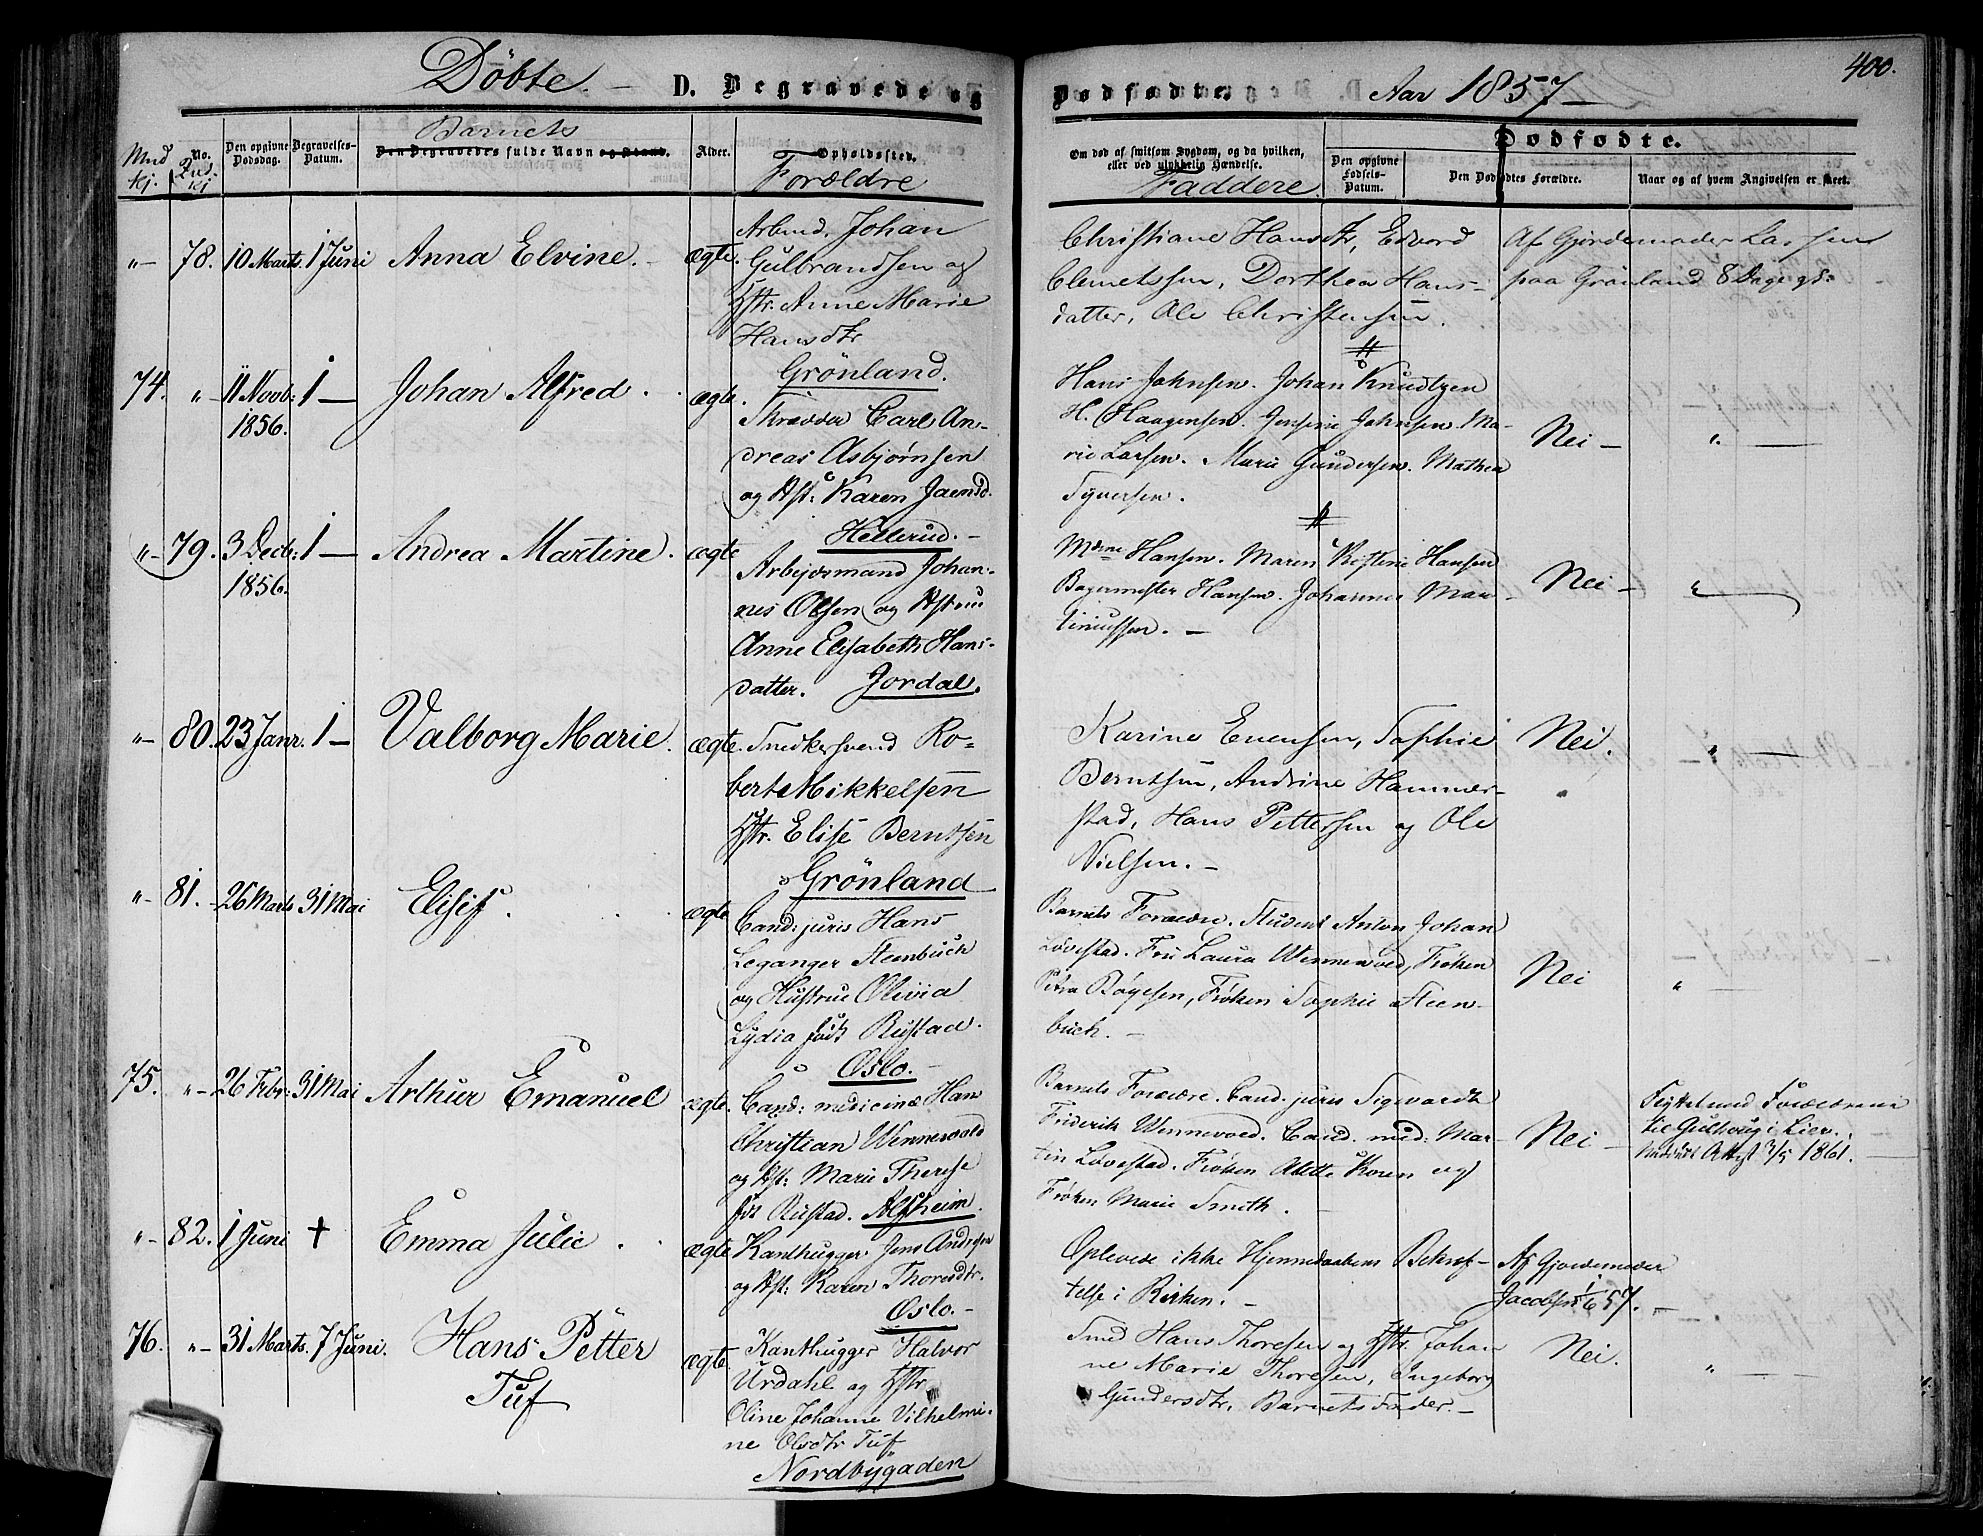 Döbte. — D. Begravede og
Dødfødte. Aar 1857 — 400.
Barnets
Mnd kj. No. Qvd. kj. Den opgivne Dødsdag. Begravelses-Datum. Den Begravedes fulde Navn og Stand. Alder. Opholdssted.
Forældre
Om død af smitsom Sygdom, og da hvilken, eller ved ulykkelig Hændelse.
Faddere
Dødfødte.
Den opgivne Fødsels-Datum. Den Dødfødtes Forældre. Naar og af hvem Angivelsen er skeet.
"- 78. 10 Marts. 1 Juni Anna Elvine. - ægte.
Arbmd. Johan
Gulbrandsen og
Hstr. Anne Marie
Hansdtr
Grönland.
Christiane Hansdtr, Edvard
Clemetssen, Dorthea Hans-
datter, Ole Christensen.
Af Gjordemoder Larsen
paa Grönland 8 Dage gs:
74. "- 11 Novb: 1856. 1 — Johan Alfred. ægte.
Skrædder Carl An-
dreas Asbjørnsen
og Hst: Karen Jaensd.
Hellerud. -
Hans Johnsen. Johan Knudtzen
H. Haagensen. Jensine Johnsen. Ma-
rie Larsen. Marie Gundersen. Mathea
Syversen.
Nei — " —
"- 79. 3 Decb: 1856. 1 — Andrea Martine. ægte
Arbejdsmand Johan-
nes Olsen og Hstru
Anne Elisabeth Hans-
datter. Jordal.
Mdme Hansen. Maren Kistine Hansen
Bagermester Hansen. Johannes Mar-
tiniussen. -
Nei - "
"- 80. 23 Janr. 1 — Valborg Marie. ægte.
Snedkersvend Ro-
bert Mikkelsen
Hstr. Elise Berntsen
Grönland
Karine Evensen, Sophie
Berntsen, Andrine Hammer-
stad, Hans Pettersen og Ole
Nielsen. -
Nei. " —
"- 81. - 26 Marts 31 Mai Elisif. ægte
Cand: juris Hans
Leganger Steenbuch
og Hustrue Olivia
Lydia født Rustad.
Oslo. -
Barnets Forældre. Student Anton Johan
Løvestad. Fru Laura Wennevold, Frøken
Petra Bøgesen, Frøken Sophie Steen-
buch. -
Nei " —
75. "- 26 Febr: 31 Mai Arthur Emanuel ægte.
Cand: medicinæ Hans
Christian Wennevold
og Hst: Marie Therese
født Rustad. Alfheim.
Barnets Forældre. Cand. juris Sigvardt
Friderik Wennevold. Cand. med: Mar-
tin Løvestad. Frøken Alette Koren og
Frøken Marie Smith.
Nei —
Flyttet med Forældrene
til Gulhaug i Lier.
Attest 3/5 1861. —
"- 82. 1 Juni † Emma Julie. ægte
Kanthugger Jens Andersen
og Hst: Karen Thoresdtr.
Oslo. -
Oplevede ikke Hjemmedaabens Bekræf-
telse i Kirken. -
Af Gjordemoder
Jacobsen 1/6 57. -
76. "- 31 Marts. 7 Juni. Hans Petter ægte.
Tuf
Kanthugger Halvor
Urdahl og Hstr
Oline Johanne Vilhelmi-
ne Olsdtr Tuf
Nordbygaden
Smed Hans Thoresen og Hstr. Johan
ne Marie Thoresen, Ingeborg
Gundersdtr, Barnets Fader. -
Nei. " —